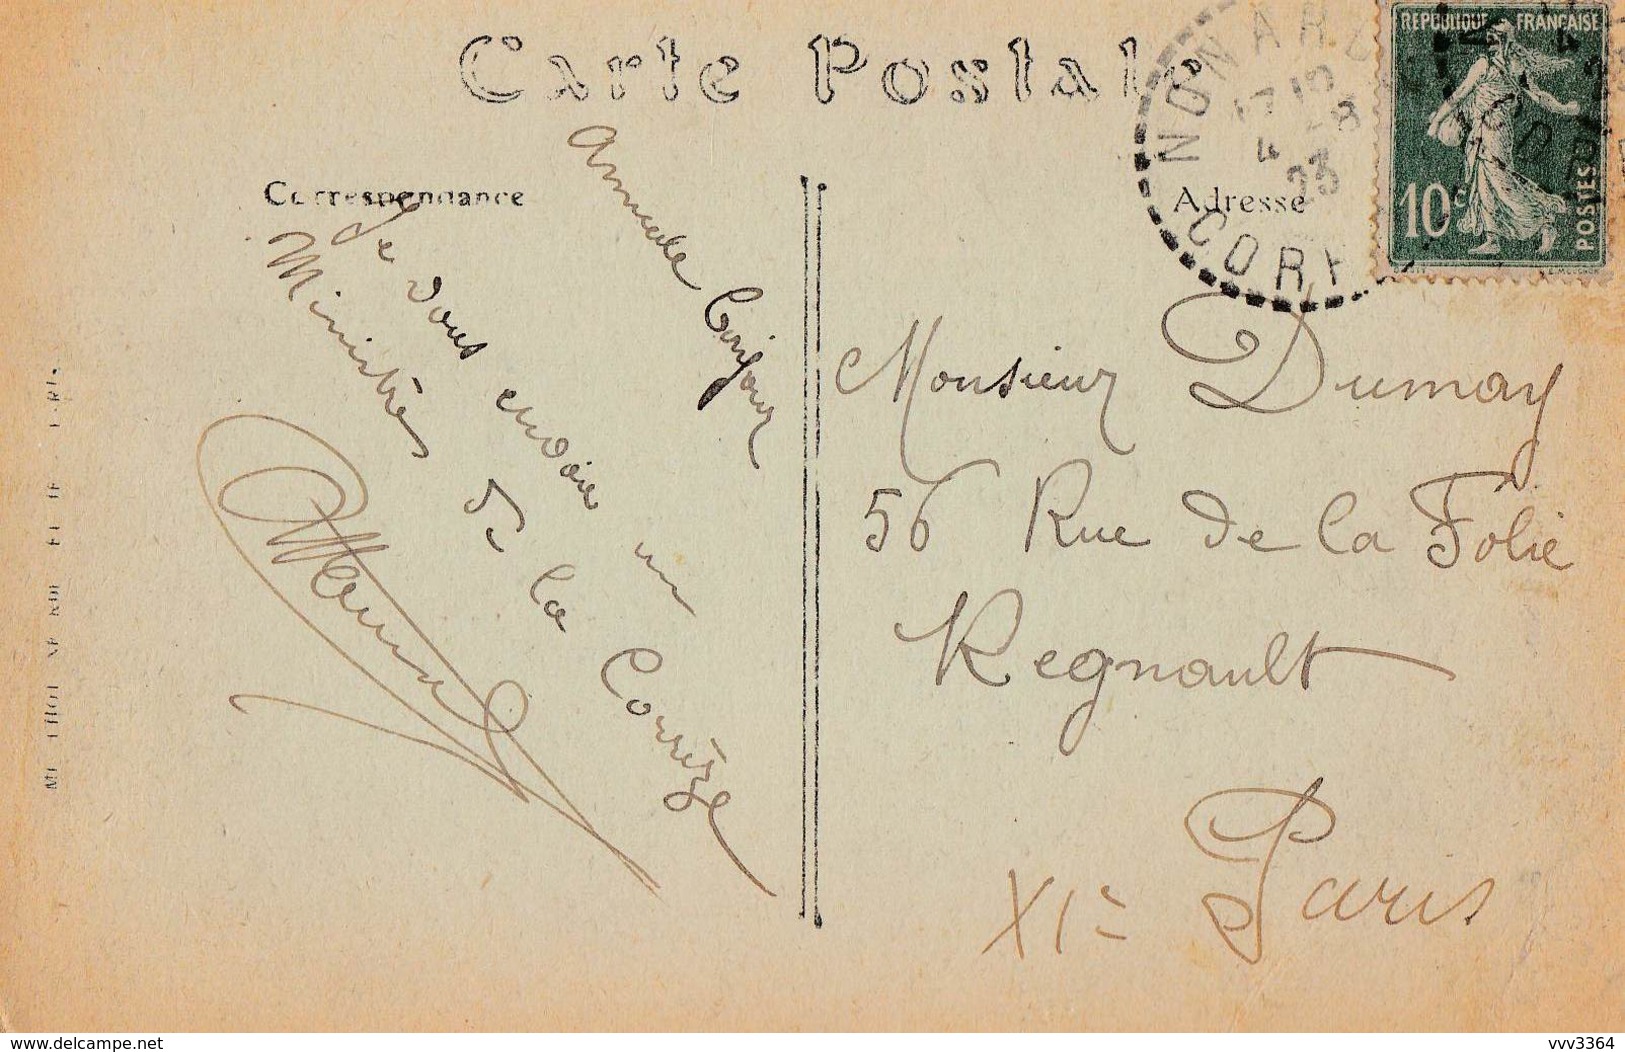 Carte Postale
Correspondance
Adresse
REPUBLIQUE FRANÇAISE
10c
POSTES
NONAR
17 12
4 -8
23
COR
Je vous envoie un
Ministre
de la Corrèze
Monsieur Dumay
56 Rue de la Folie
Regnault
XIe Paris
www.delcampe.net
vvv3364